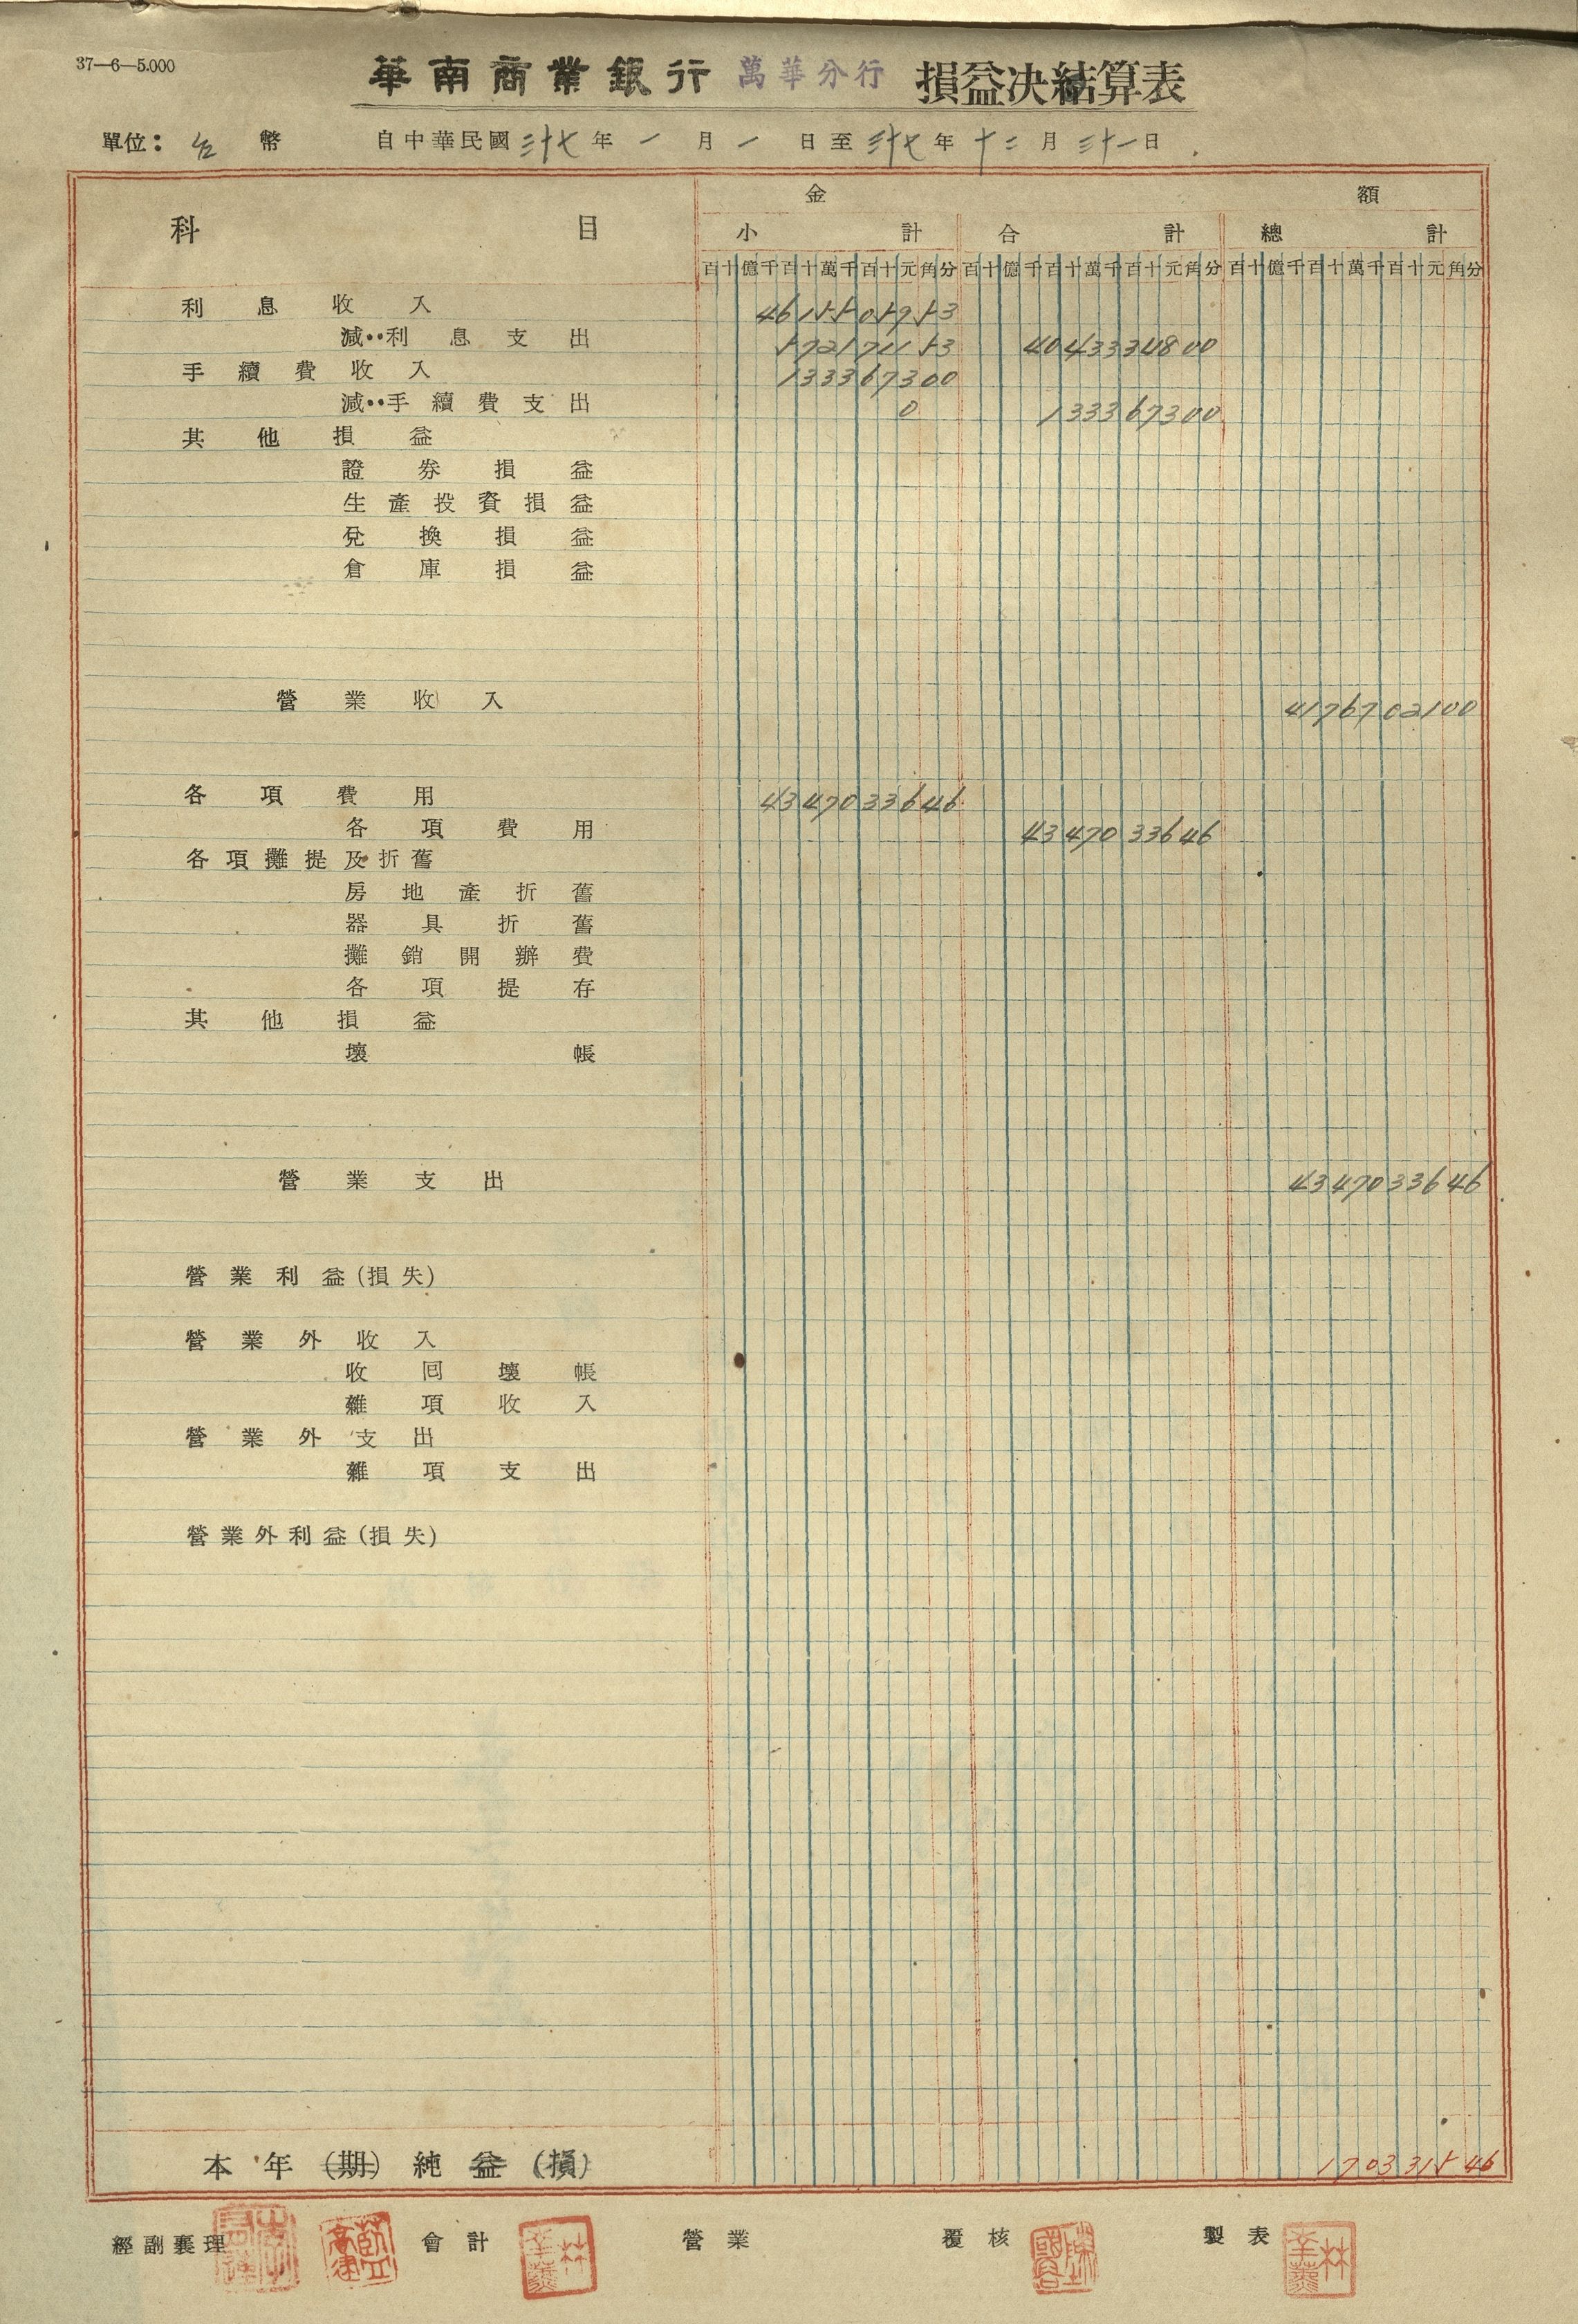 37—6—5.000
華南商業銀行 萬華分行 損益決結算表
單位：台幣 自中華民國三十七年一月一日至三十七年十二月三十一日
科目 金額
小計 合計 總計
百十億千百十萬千百十元角分 百十億千百十萬千百十元角分 百十億千百十萬千百十元角分
利息收入 4615505953
減：利息支出 572171153 4043334800
手續費收入 133367300
減：手續費支出 0 133367300
其他損益
證券損益
生產投資損益
兌換損益
倉庫損益
營業收入 4176702100
各項費用 4347033646
各項費用 4347033646
各項攤提及折舊
房地產折舊
器具折舊
攤銷開辦費
各項提存
其他損益
壞帳
營業支出 4347033646
營業利益(損失)
營業外收入
收回壞帳
雜項收入
營業外支出
雜項支出
營業外利益(損失)
本年(期)純益(損) 170331546
經副襄理 會計 營業 覆核 製表